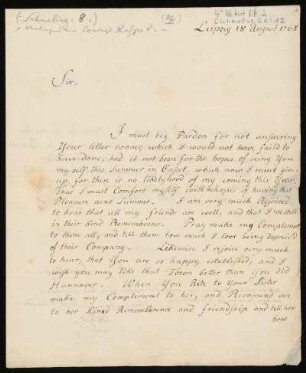 Leipzig 18 August 1768
Sir.
I must beg Pardon for not answering
Your letter sooner, which I would not have faild to
have done, had it not been for the hopes of seing You
my self this Summer in Cassel, which now I must give
up, for there is no likelyhood of my coming this Year.
Thus I must Comfort myself with the hopes of having that
Pleasure next Summer. I am very much Rejoiced
to hear that all my friends are well, and that I am still
in their kind Remembrance. Pray make my Compliment
to them all, and tell them how much I loos being deprived
of their Company. Likewise I rejoice very much
to hear, that You are so happily established, and I
wish you may like that Town better than you did
Hannover. When You Rite to Your Sister
make my Compliment to her, and Recomend me
to her kind Remembrance and friendship and tell her
how